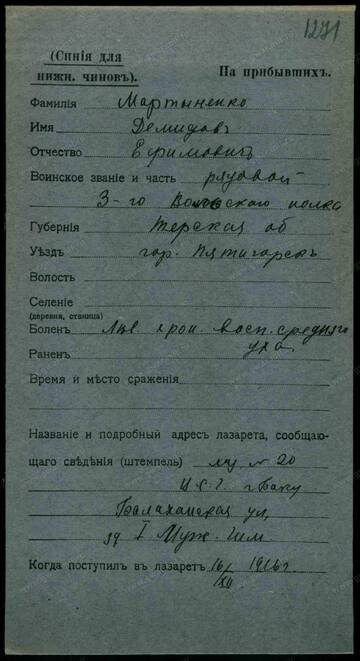 1271
(Синія для
нижн. чиновъ).
На прибывшихъ.
Фамилія Мартыненко
Имя Демидовъ
Отчество Ефимовичъ
Воинское званіе и часть рядовой
3-го полка
Губернія Терская об
Уѣздъ гор. Пятигорскъ
Волость
Селеніе
(деревня, станица)
Боленъ Лѣв хрон. восп. средняго
уха
Раненъ
Время и мѣсто сраженія
Названіе и подробный адресъ лазарета, сообщаю-
щаго свѣдѣнія (штемпель) № 20
г. Баку
Балаханская ул,
I Муж. Гим.
Когда поступилъ въ лазаретъ 16/XII 1916 г.